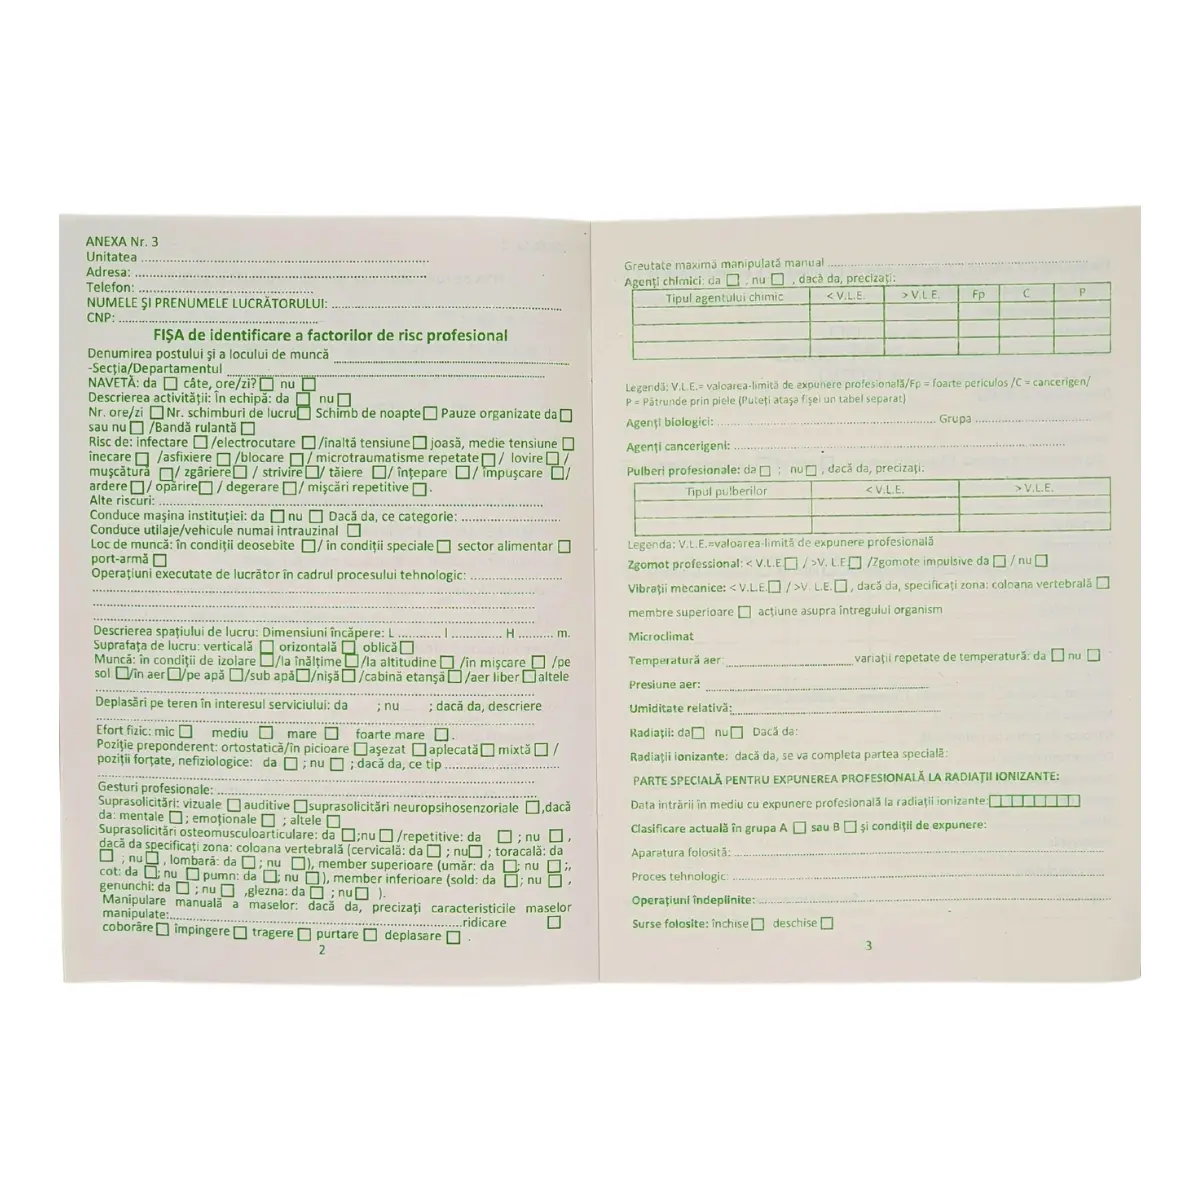 ANEXA Nr. 3
Unitatea ........................
Adresa: ........................
Telefon: ........................
NUMELE ŞI PRENUMELE LUCRĂTORULUI: ........................
CNP: ........................
FIŞA de identificare a factorilor de risc profesional
Denumirea postului şi a locului de muncă ........................
-Secţia/Departamentul ........................
NAVETĂ: da ☐ câte, ore/zi? ☐ nu ☐
Descrierea activităţii: În echipă: da ☐ nu ☐
Nr. ore/zi ☐ Nr. schimburi de lucru ☐ Schimb de noapte ☐ Pauze organizate da ☐
sau nu ☐ /Bandă rulantă ☐
Risc de: infectare ☐ /electrocutare ☐ /înaltă tensiune ☐ joasă, medie tensiune ☐
înecare ☐ /asfixiere ☐ /blocare ☐ / microtraumatisme repetate ☐ / lovire ☐ /
muşcătură ☐ / zgâriere ☐ / strivire ☐ / tăiere ☐ / înţepare ☐ / împuşcare ☐ /
ardere ☐ / opărire ☐ / degerare ☐ / mişcări repetitive ☐ .
Alte riscuri: ........................
Conduce maşina instituţiei: da ☐ nu ☐ Dacă da, ce categorie: ........................
Conduce utilaje/vehicule numai intrauzinal ☐
Loc de muncă: în condiţii deosebite ☐ / în condiţii speciale ☐ sector alimentar ☐
port-armă ☐
Operaţiuni executate de lucrător în cadrul procesului tehnologic: ........................
Descrierea spaţiului de lucru: Dimensiuni încăpere: L ............ l ............ H .......... m.
Suprafaţa de lucru: verticală ☐ orizontală ☐ oblică ☐
Muncă: în condiţii de izolare ☐ /la înălţime ☐ /la altitudine ☐ /în mişcare ☐ /pe
sol ☐ /în aer ☐ /pe apă ☐ /sub apă ☐ /nişă ☐ /cabină etanşă ☐ /aer liber ☐ altele
........................
Deplasări pe teren în interesul serviciului: da ; nu ; dacă da, descriere
........................
Efort fizic: mic ☐ mediu ☐ mare ☐ foarte mare ☐ .
Poziţie preponderent: ortostatică/în picioare ☐ aşezat ☐ aplecată ☐ mixtă ☐ /
poziţii forţate, nefiziologice: da ☐ ; nu ☐ ; dacă da, ce tip ........................
........................
Gesturi profesionale: ........................
Suprasolicitări: vizuale ☐ auditive ☐ suprasolicitări neuropsihosenzoriale ☐ ,dacă
da: mentale ☐ ; emoţionale ☐ ; altele ☐
Suprasolicitări osteomusculoarticulare: da ☐ ;nu ☐ /repetitive: da ☐ ; nu ☐ ,
dacă da specificaţi zona: coloana vertebrală (cervicală: da ☐ ; nu ☐ ; toracală: da
☐ ; nu ☐ , lombară: da ☐ ; nu ☐ ), member superioare (umăr: da ☐ ; nu ☐ ;,
cot: da ☐ ; nu ☐ pumn: da ☐ ; nu ☐ ), member inferioare (sold: da ☐ ; nu ☐ ,
genunchi: da ☐ ; nu ☐ ,glezna: da ☐ ; nu ☐ ).
Manipulare manuală a maselor: dacă da, precizaţi caracteristicile maselor
manipulate:........................ridicare ☐
coborâre ☐ împingere ☐ tragere ☐ purtare ☐ deplasare ☐ .
2
Greutate maximă manipulată manual ........................
Agenţi chimici: da ☐ , nu ☐ , dacă da, precizaţi:
Tipul agentului chimic < V.L.E. > V.L.E. Fp C P
Legendă: V.L.E.= valoarea-limită de expunere profesională/Fp = foarte periculos /C = cancerigen/
P = Pătrunde prin piele (Puteţi ataşa fişei un tabel separat)
Agenţi biologici: ........................ Grupa ........................
Agenţi cancerigeni: ........................
Pulberi profesionale: da ☐ ; nu ☐ , dacă da, precizaţi:
Tipul pulberilor < V.L.E. > V.L.E.
Legenda: V.L.E.=valoarea-limită de expunere profesională
Zgomot professional: < V.L.E ☐ / >V. L.E ☐ /Zgomote impulsive da ☐ / nu ☐
Vibraţii mecanice: < V.L.E. ☐ / >V. L.E. ☐ , dacă da, specificaţi zona: coloana vertebrală ☐
membre superioare ☐ acţiune asupra întregului organism
Microclimat
Temperatură aer: ........................ variaţii repetate de temperatură: da ☐ nu ☐
Presiune aer: ........................
Umiditate relativă: ........................
Radiaţii: da ☐ nu ☐ Dacă da:
Radiaţii ionizante: dacă da, se va completa partea specială:
PARTE SPECIALĂ PENTRU EXPUNEREA PROFESIONALĂ LA RADIAŢII IONIZANTE:
Data intrării în mediu cu expunere profesională la radiaţii ionizante: ☐☐☐☐☐☐☐☐
Clasificare actuală în grupa A ☐ sau B ☐ şi condiţii de expunere:
Aparatura folosită: ........................
Proces tehnologic: ........................
Operaţiuni îndeplinite: ........................
Surse folosite: închise ☐ deschise ☐
3